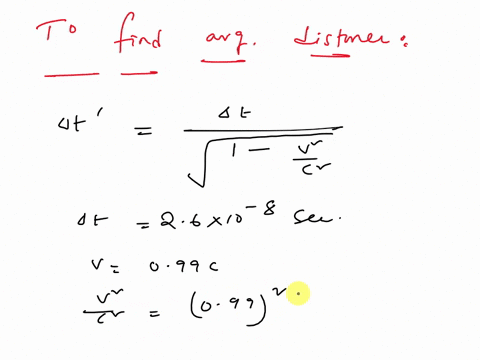 To find avg. distance:
Δt' = Δt / √(1 - v²/c²)
Δt = 2.6 × 10⁻⁸ Sec.
v = 0.99 c
v²/c² = (0.99)²